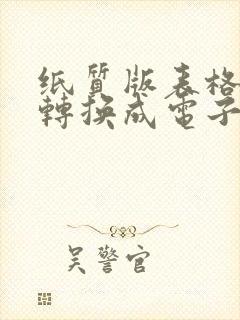 纸質版表格
轉换成電子
吴警官